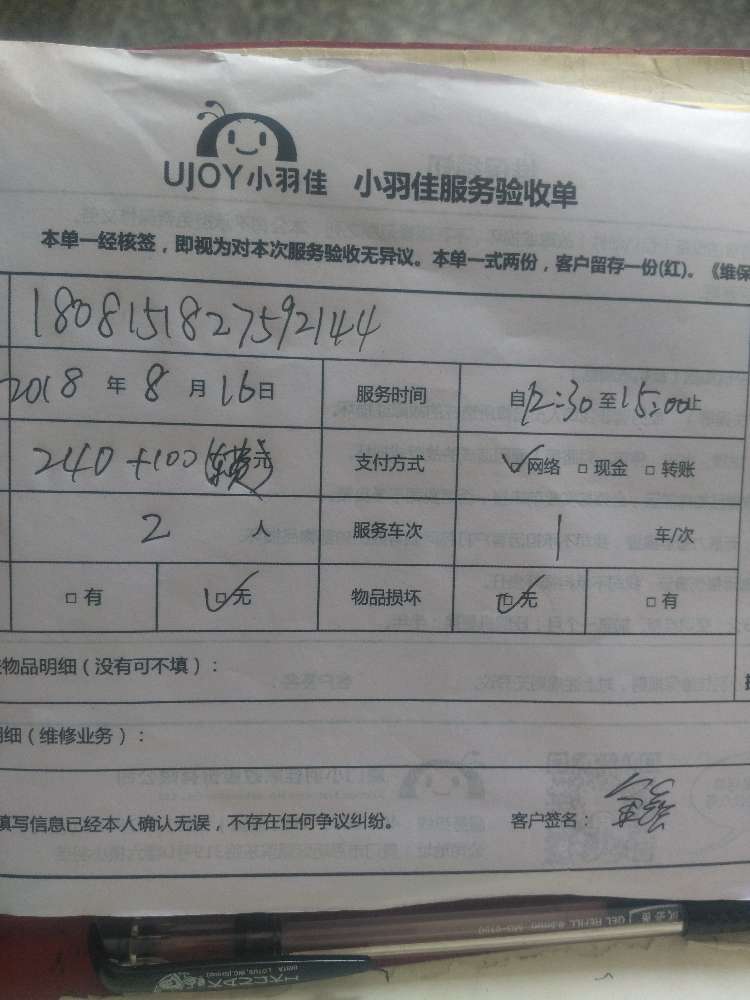 UJOY小羽佳 小羽佳服务验收单
本单一经核签，即视为对本次服务验收无异议。本单一式两份，客户留存一份(红)。《维保
1808151827592144
2018 年 8 月 16 日 服务时间 自12:30至15:00止
240+100 元 支付方式 ☑网络 □ 现金 □ 转账
2 人 服务车次 1 车/次
□ 有 ☑无 物品损坏 ☑无 □ 有
物品明细（没有可不填）：
细（维修业务）：
填写信息已经本人确认无误，不存在任何争议纠纷。 客户签名：
GEL REFILL 0.5mm